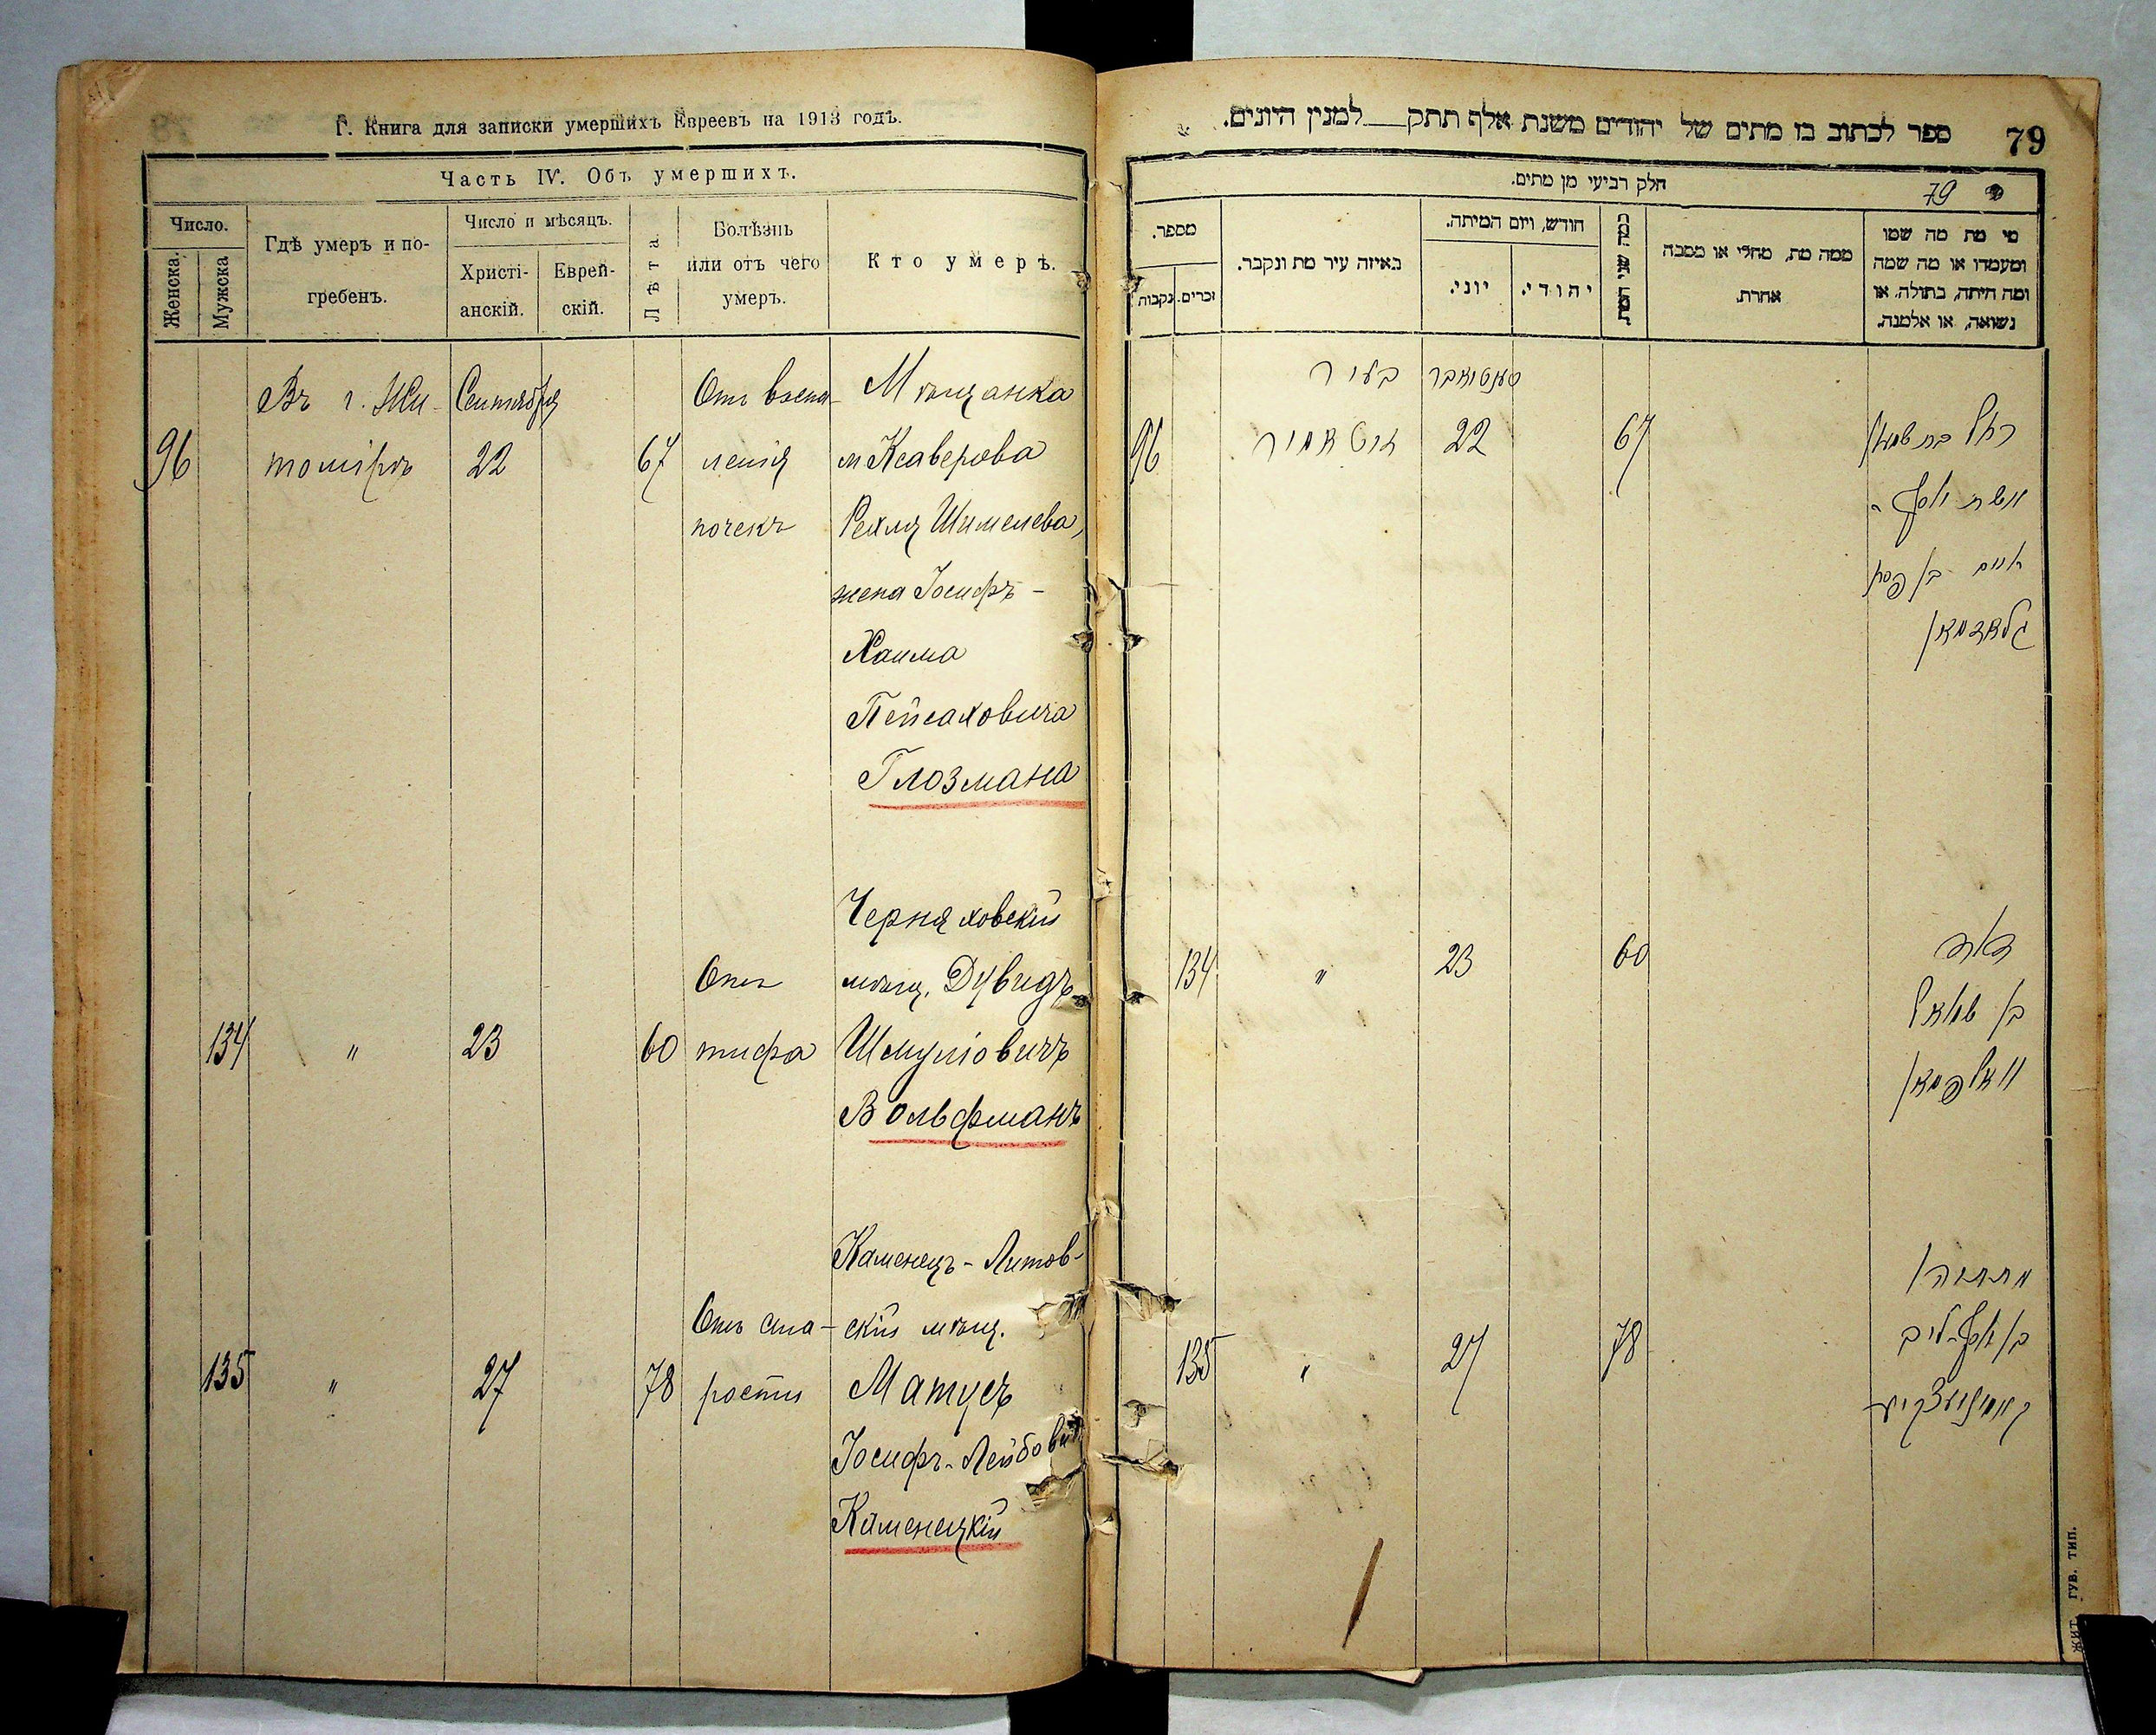 Г. Книга для записки умершихъ Евреевъ на 1913 годъ.
Часть IV. Объ умершихъ.
Число.
Женска.
Мужска
Гдѣ умеръ и по-
гребенъ.
Число и мѣсяцъ.
Христі-
анскій.
Еврей-
скій.
Лѣта.
Болѣзнь
или отъ чего
умеръ.
Кто умеръ.
96
Въ г. Жи-
томірѣ
Сентября
22
67
Отъ воспа-
ленія
почекъ
Мѣщанка
м Ксаверова
Рехля Шимелева,
жена Іосифъ-
Хаима
Пейсаховича
Глозмана
134
"
23
60
Отъ
тифа
Черняховскій
мѣщ. Дувидъ
Шмуліовичъ
Вольфманъ
135
"
27
78
Отъ ста-
рости
Каменецъ-Литов-
скій мѣщ.
Матусъ
Іосифъ-Лейбович
Каменецкій
79
ספר לכתוב בו מתים של יהודים משנת אלף תתק למנין היונים.
79
חלק רביעי מן מתים.
מספר.
נקבות
זכרים.
באיזה עיר מת ונקבר.
חודש, ויום המיתה.
יוני.
יהודי.
כמה שני המת
ממה מת, מחלי או מסבה
אחרת.
מי מת מה שמו
ומעמדו או מה שמה
ומה היתה, בתולה, או
נשואה, או אלמנה.
96
בעיר
זיטאמיר
סעפטאבר
22
67
רחל בת שמעון
אשת יוסף-
חיים בן פסח
גלאזמאן
134
"
23
60
דוד
בן שמואל
וואלפמאן
135
"
27
78
מתתיהו
בן יוסף-ליב
קאמינעצקיי
ЖИТ. ГУБ. ТИП.